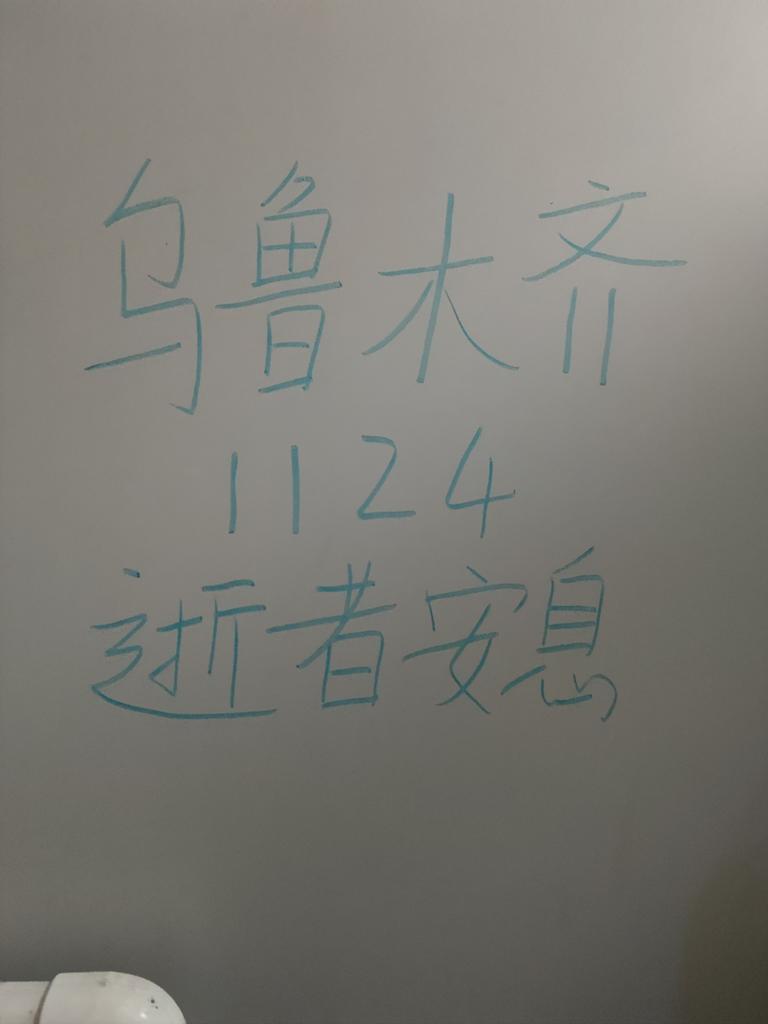 乌鲁木齐
1124
逝者安息